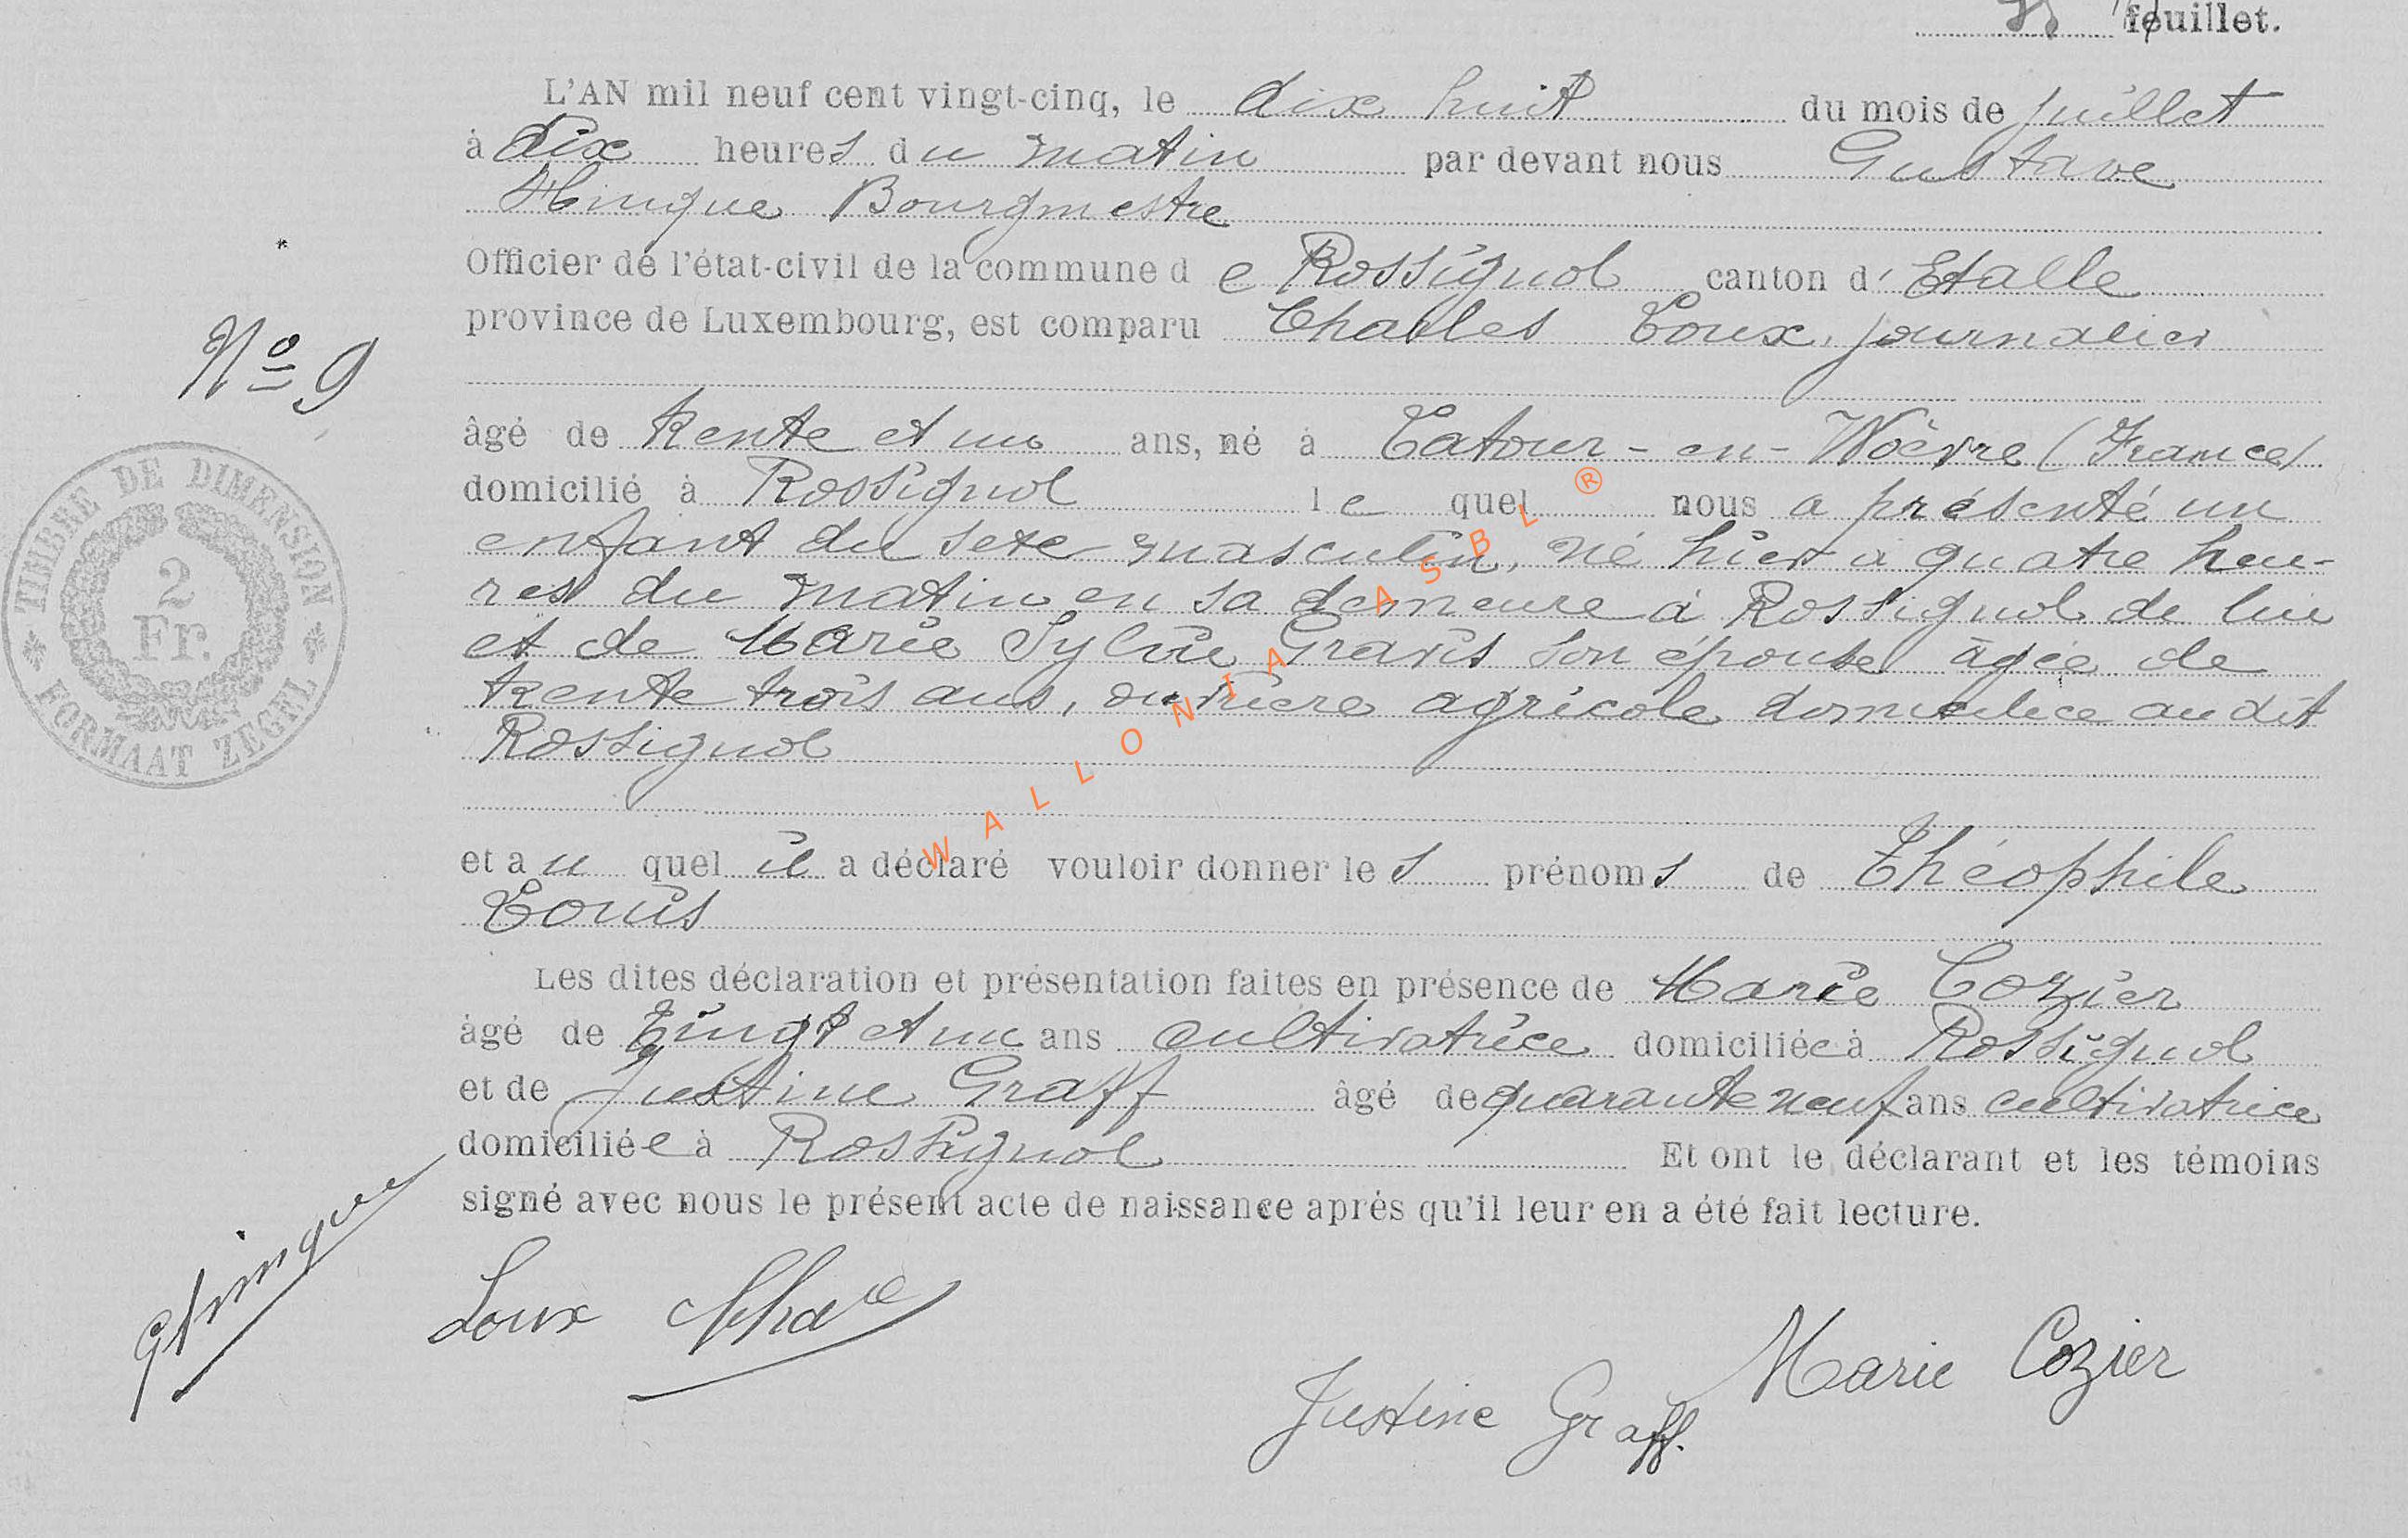 feuillet.
L'AN mil neuf cent vingt-cinq, le dix huit du mois de juillet
à dix heures du matin par devant nous Gustave
Hinque Bourgmestre
Officier de l'état-civil de la commune de Rossignol canton d'Etalle
province de Luxembourg, est comparu Charles Loux, journalier
Nº 9
âgé de trente et un ans, né à Latour-en-Woëvre (France)
domicilié à Rossignol lequel nous a présenté un
enfant du sexe masculin, né hier à quatre heu-
res du matin en sa demeure à Rossignol de lui
et de Marie Sylvie Gravis son épouse âgée de
trente trois ans, ouvrière agricole domiciliée au dit
Rossignol
TIMBRE DE DIMENSION
2
Fr.
FORMAAT ZEGEL
WALLONIA ASBL ®
et au quel il a déclaré vouloir donner les prénoms de Théophile
Louis
Les dites déclaration et présentation faites en présence de Marie Cozier
âgé de vingt et un ans cultivatrice domiciliée à Rossignol
et de Justine Graff âgé de quarante neuf ans cultivatrice
domiciliée à Rossignol Et ont le déclarant et les témoins
signé avec nous le présent acte de naissance après qu'il leur en a été fait lecture.
GHinque
Loux Ch
Marie Cozier
Justine Graff.